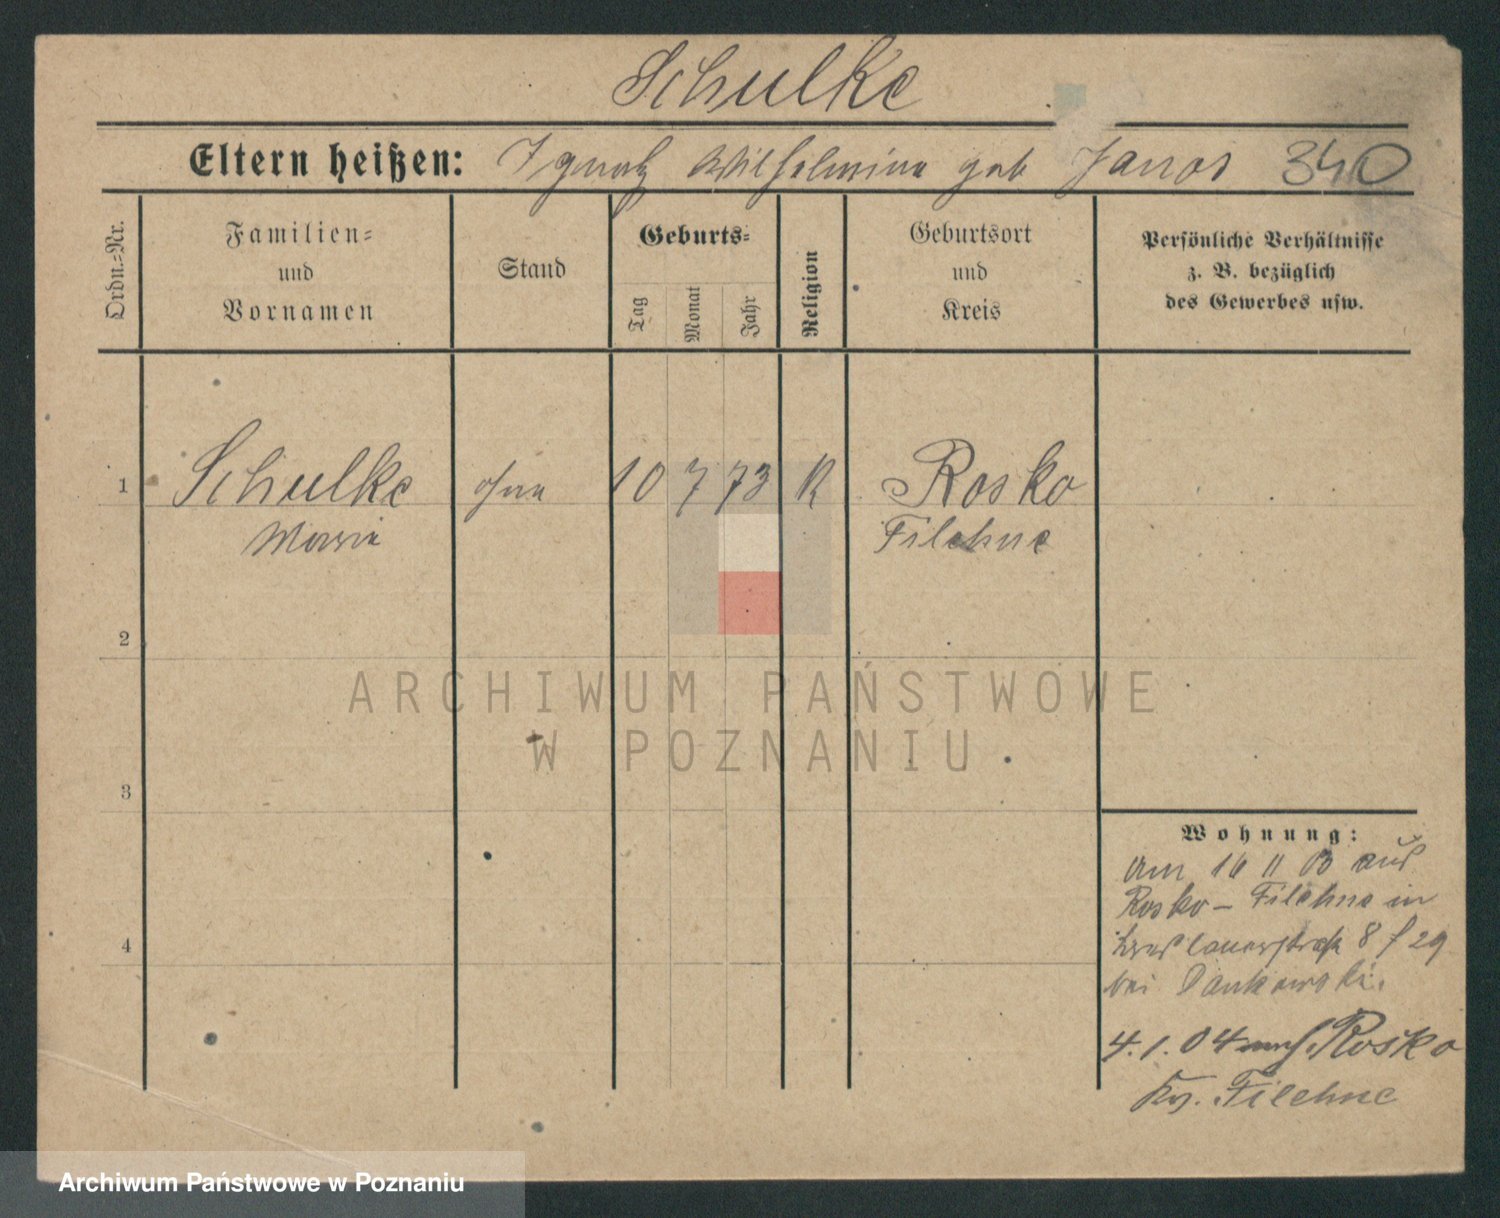 Schulke
Eltern heißen: Ignatz Wilhelmine geb Janos 340
Ordn.-Nr.
Familien-
und
Vornamen
Stand
Geburts-
Tag
Monat
Jahr
Religion
Geburtsort
und
Kreis
Persönliche Verhältnisse
z. B. bezüglich
des Gewerbes usw.
1 Schulke ohne 10 7 73 K Rosko
Maria Filehne
2
3
4
ARCHIWUM PAŃSTWOWE
W POZNANIU
Wohnung:
am 16 11 03 aus
Rosko - Filehne in
8 f 29
bei Dankowski.
4.1.04 nach Rosko
Kr. Filehne
Archiwum Państwowe w Poznaniu